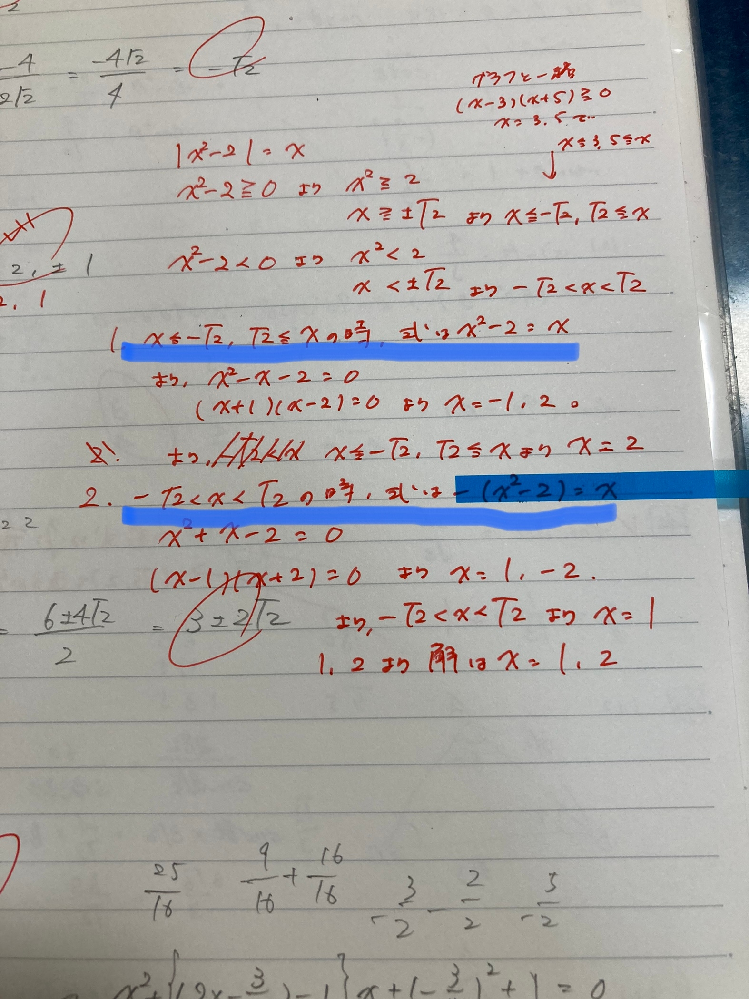 -4/2√2 = -4√2/4 = -√2
グラフと一緒
(x-3)(x+5)≧0
x=3.5で
x≦3, 5≦x
|x²-2|=x
x²-2≧0 より x²≧2
x≧±√2 より x≦-√2, √2≦x
x²-2<0 より x²<2
x<±√2 より -√2<x<√2
2, ±1
2, 1
1. x≦-√2, √2≦xの時, 式は x²-2=x
より, x²-x-2=0
(x+1)(x-2)=0 より x=-1, 2。
より, x≦-√2, √2≦xより x=2
2. -√2<x<√2の時, 式は -(x²-2)=x
2 2
x²+x-2=0
(x-1)(x+2)=0 より x=1, -2.
= 6±4√2/2 = 3±2√2
より, -√2<x<√2 より x=1
1, 2より 解は x=1, 2
25/16 9/16 + 16/16
-3/2 - 2/2 -5/2
x²+{(2x-3/)-1}x+(-3/2)²+1=0